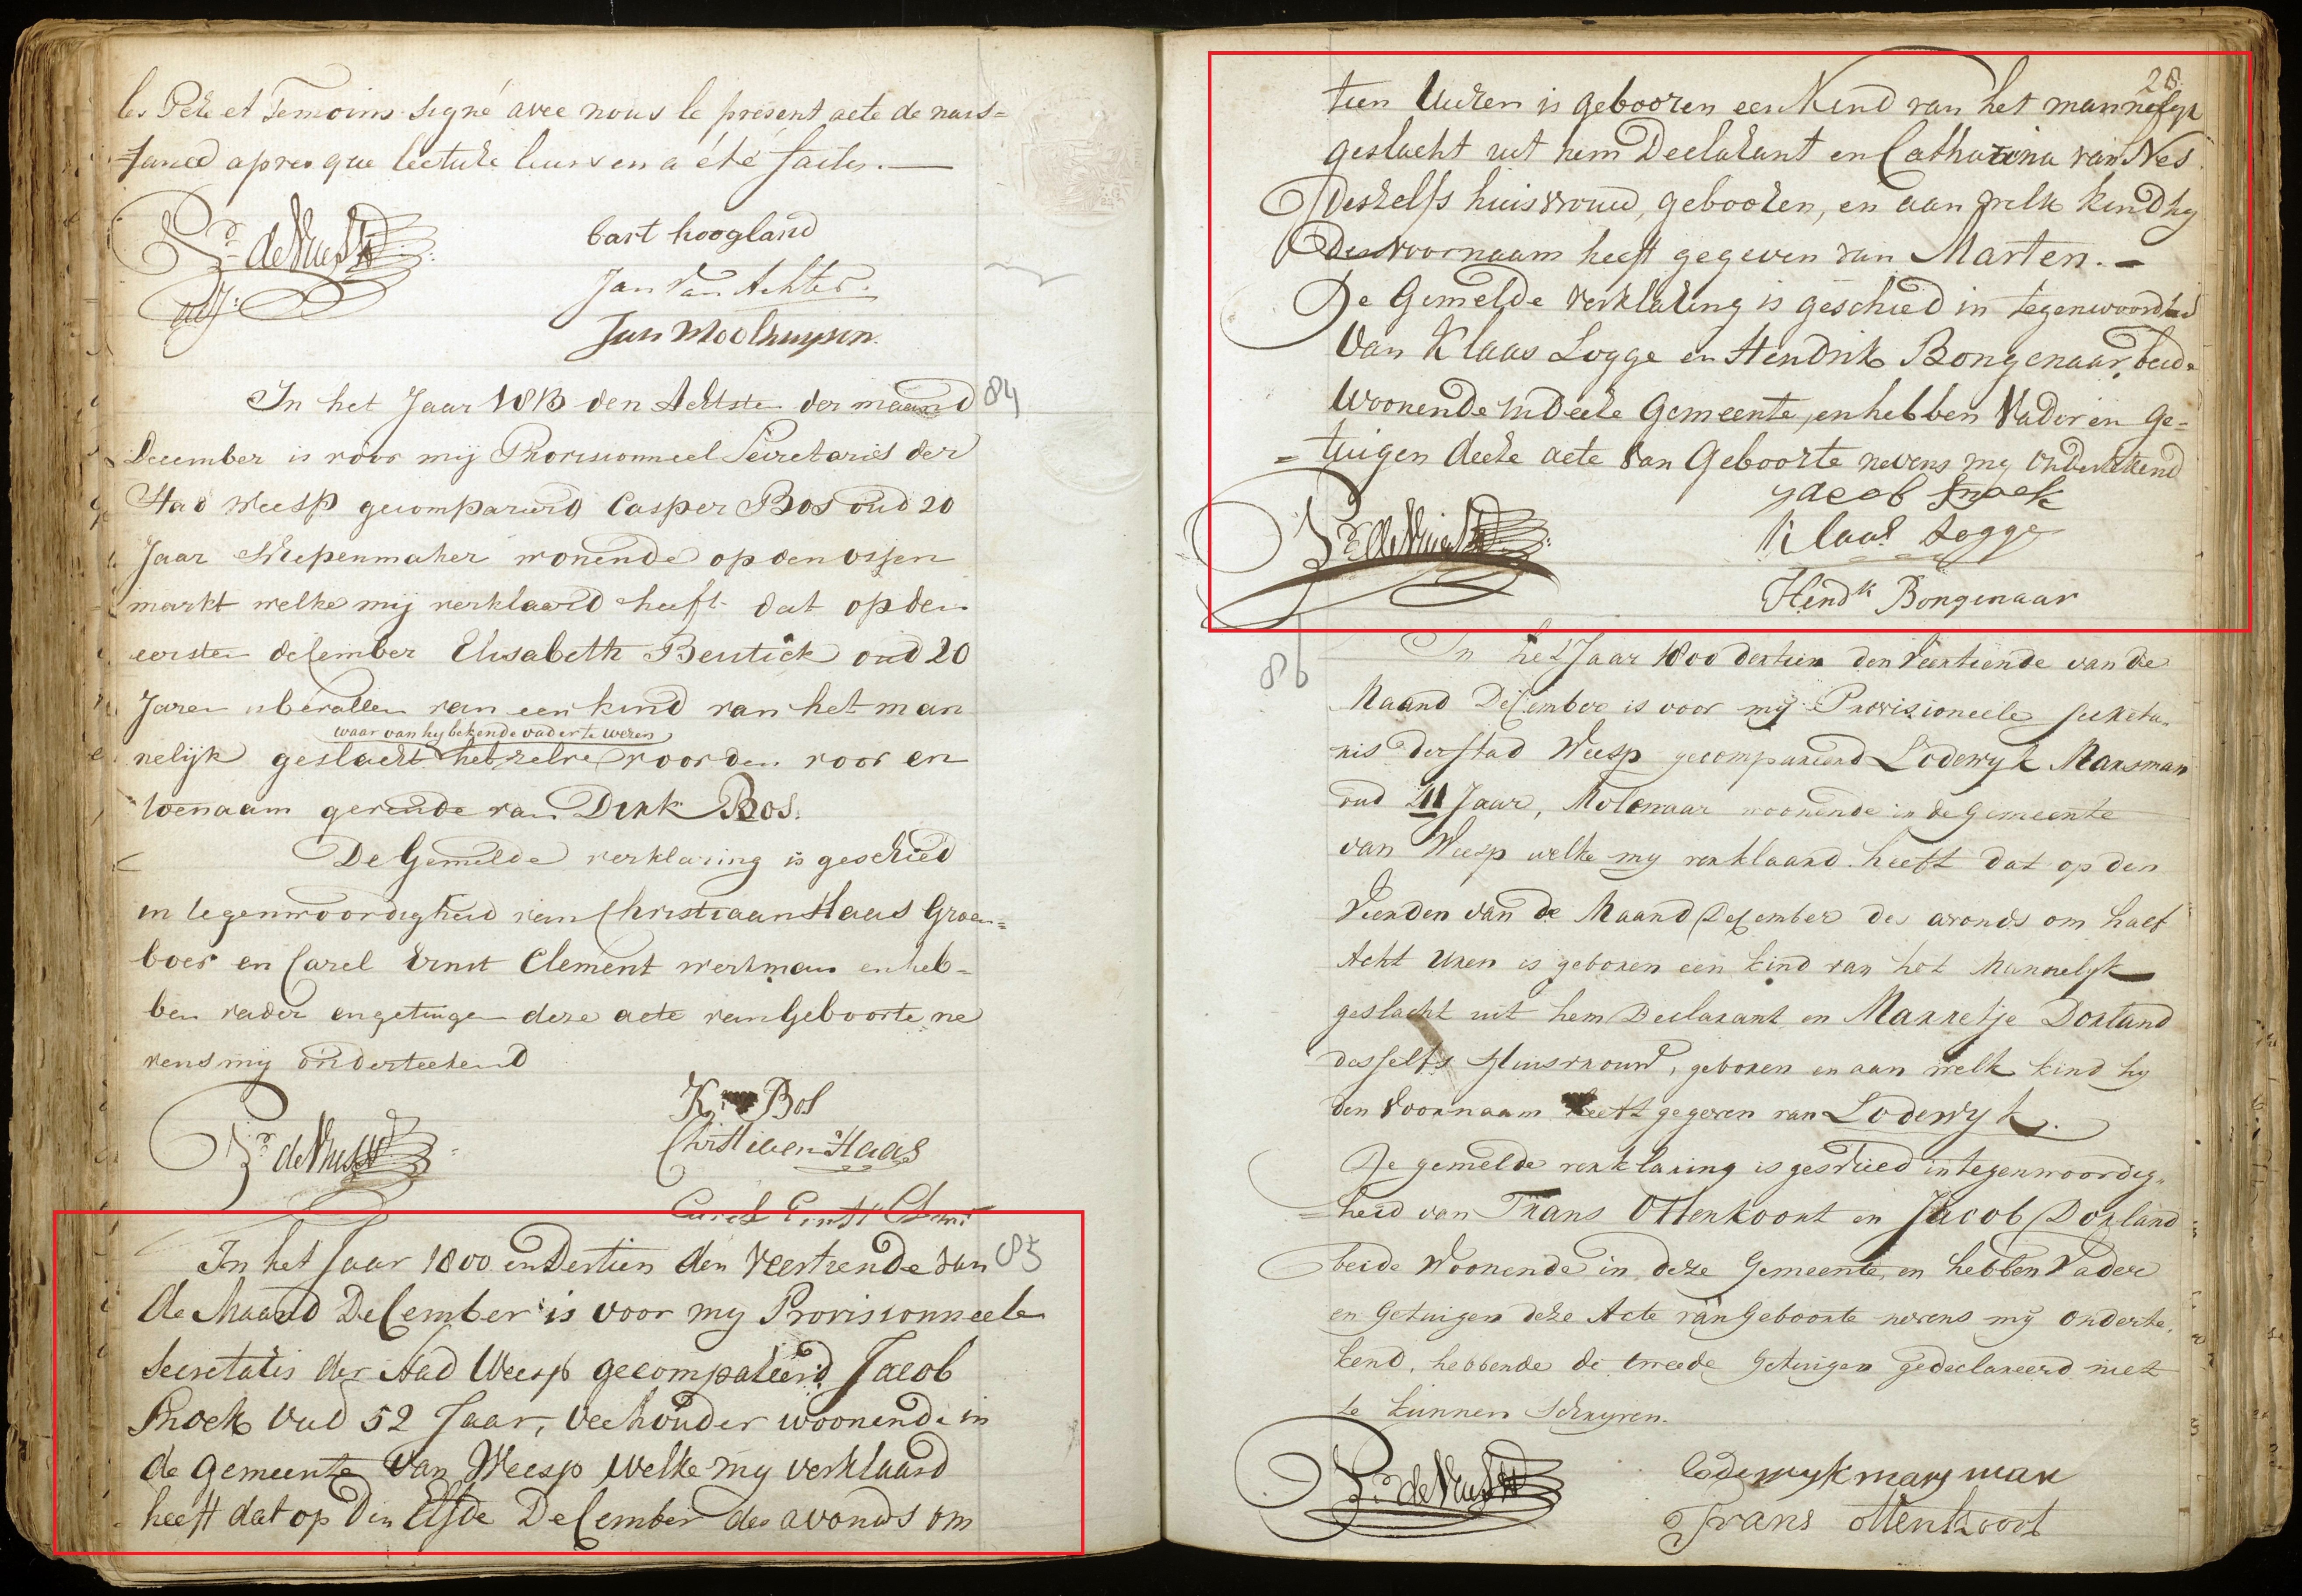 les Pere et Temoins signé avec nous le présent acte de nais=
sance apres que lecture leurs en a été faite. —
bart hoogland
Jan Van Achter.
Jan Moolhuysen.
In het Jaar 1813 den Achtste der maand 84
December is voor mij Provisionneel Secretaris der
Stad Weesp gecompareerd Casper Bos oud 20
Jaar Schepenmaker wonende op den ossen
markt welke mij verklaard heeft dat op den
eersten december Elisabeth Beutick oud 20
Jaren is bevallen van een kind van het man
waar van hy bekende vader te wezen
nelijk geslacht hetzelve voor den voor en
toenaam gevende van Dirk Bos.
De Gemelde verklaring is geschied
in tegenwoordigheid van Christiaan Haas Groen=
boer en Carel Ernst Clement werkman en heb=
ben vader en getuigen deze acte van Geboorte ne
vens mij onderteekend
K. Bos
Christiaen Haas
Carel Ernst Clement
In het Jaar 1800 en Dertien den Veertiende van 85
de Maand December is voor my Provisionneele
Secretaris der Stad Weesp gecompareerd Jacob
Snoek Oud 52 Jaar, veehouder woonende in
de gemeente van Weesp welke my verklaard
heeft dat op den Elfde December des avonds om
28
tien Uuren is gebooren een Kind van het mannelyk
geslacht uit hem Declarant en Catharina van Nes
deszelfs huisvrouw, gebooren, en aan welk kind hy
den voornaam heeft gegeven van Marten. —
De Gemelde verklaring is geschied in tegenwoordheid
Van Klaas Logge en Hendrik Bongenaar, beide
Woonende in deeze Gemeente, en hebben Vader en Ge-
= tuigen deeze acte van Geboorte nevens my Onderteekend
Jacob Snoek
Klaas Logge
Hendk Bongenaar
86
In het Jaar 1800 dertien den Veertiende van de
Maand December is voor my Provisioneele secreta-
ris der stad Weesp gecompareerd Lodewyk Marsman
oud 41 Jaar, Molenaar woonende in de Gemeente
van Weesp welke my verklaard heeft dat op den
Tienden van de Maand December des avonds om half
Acht Uren is geboren een kind van het Mannelyk
geslacht uit hem Declarant en Marretje Dorland
desselfs Huisvrouw, geboren en aan welk kind hy
den Voornaam heeft gegeven van Lodewyk.
De gemelde verklaring is geschied in tegenwoordig-
= heid van Frans Ottenkoort en Jacob Dorland
beide Woonende in deze Gemeente, en hebben Vader
en Getuigen deze Acte van Geboorte nevens my onderte-
kend, hebbende de tweede Getuigen gedeclareerd niet
te kunnen Schryven.
Lodewyk marsman
Frans Ottenkoort